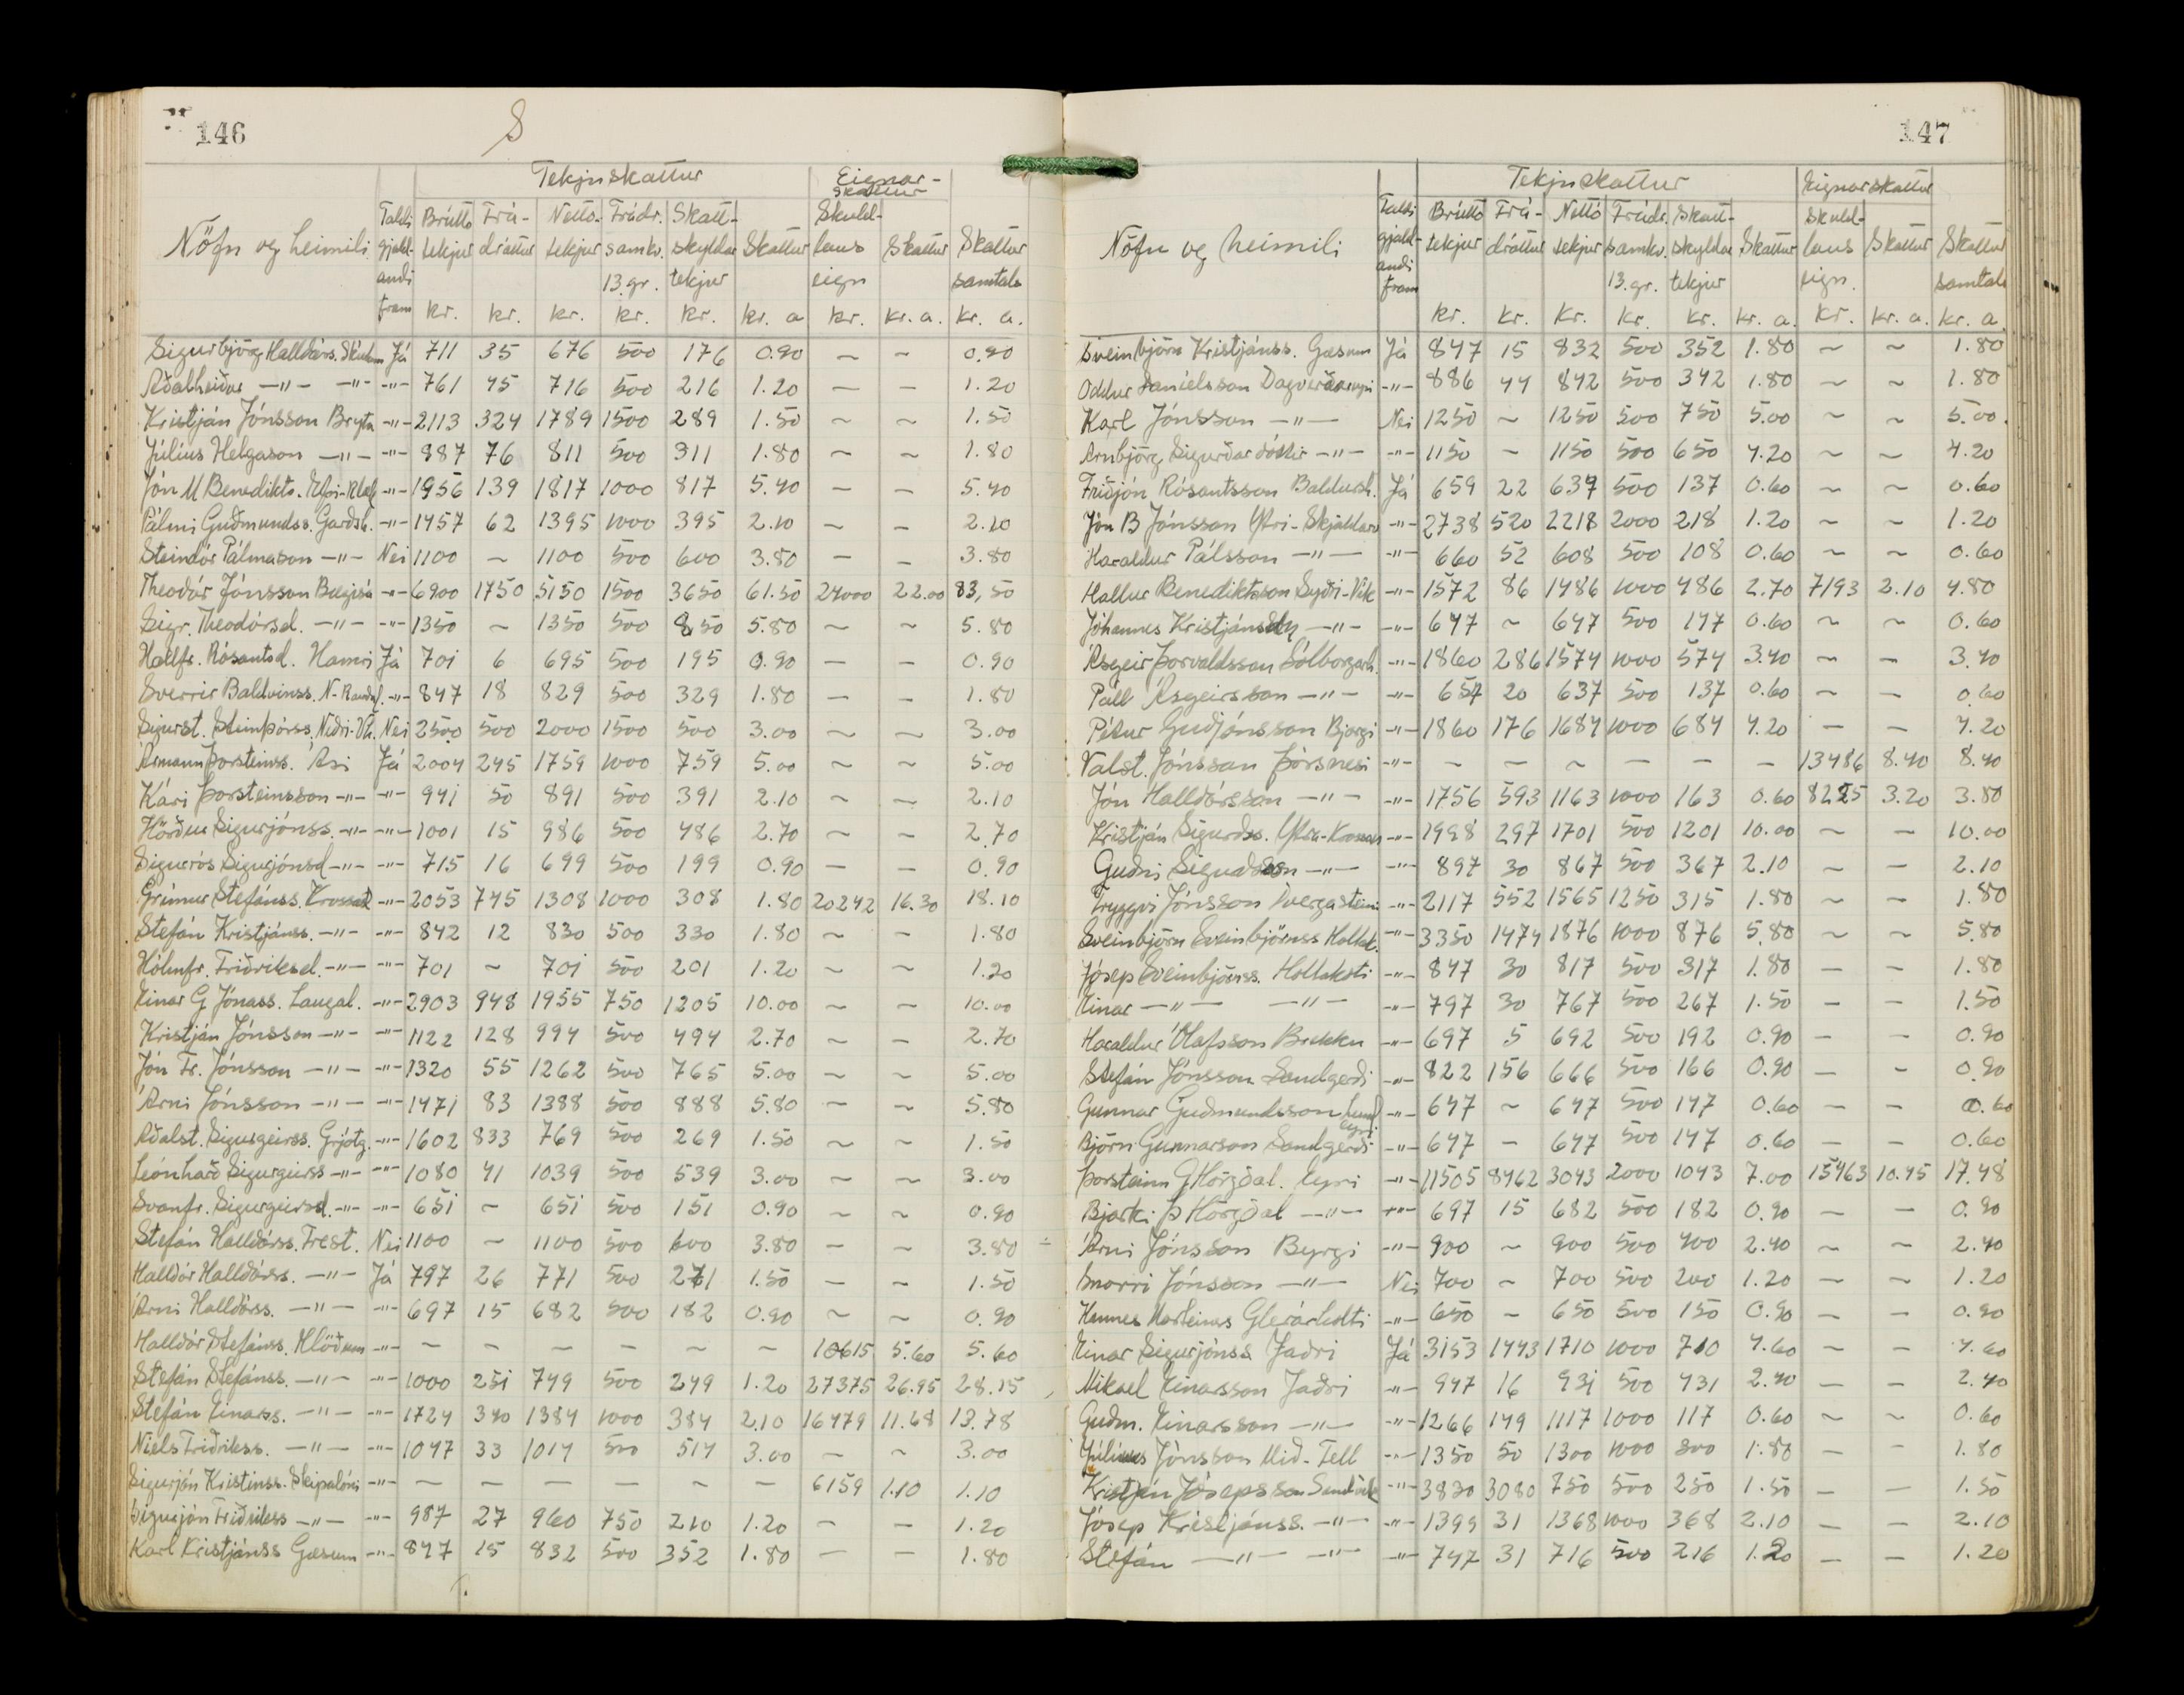 146
S
Tekjuskattur Eignar-skattur
Nöfn og heimili Taldi gjald-andi fram Brúttó tekjur Frá-dráttur Nettó-tekjur Frádr. samkv. 13. gr. Skatt-skyldar tekjur Skattur Skuld-laus eign Skattur Skattur samtals
kr. kr. kr. kr. kr. kr. a kr. kr. a. kr. a.
Sigurbjörg Halldórs. Skútum Já 711 35 676 500 176 0.90 ~ ~ 0.90
Aðalheiður —"— —"— -"- 761 45 716 500 216 1.20 — — 1.20
Kristján Jónsson Bryta -"- 2113 324 1789 1500 289 1.50 ~ ~ 1.50
Júlíus Helgason —"— -"- 887 76 811 500 311 1.80 ~ ~ 1.80
Jón M Benedikts. Efri-Rauðal. -"- 1956 139 1817 1000 817 5.40 — — 5.40
Pálmi Guðmundss. Garðsh. -"- 1457 62 1395 1000 395 2.10 ~ — 2.10
Steindór Pálmason —"— Nei 1100 ~ 1100 500 600 3.80 — — 3.80
Theodór Jónsson Bægisá -"- 6900 1750 5150 1500 3650 61.50 24000 22.00 83,50
Sigr. Theodórsd. —"— -"- 1350 ~ 1350 500 850 5.80 ~ ~ 5.80
Hallfr. Rósantsd. Hamri Já 701 6 695 500 195 0.90 — — 0.90
Sverrir Baldvinss. N-Rauðal. -"- 847 18 829 500 329 1.80 — — 1.80
Sigurst. Steinþórss. Neðri-Vh. Nei 2500 500 2000 1500 500 3.00 ~ ~ 3.00
Ármann Þorsteinss. Ási Já 2004 245 1759 1000 759 5.00 ~ ~ 5.00
Kári Þorsteinsson -"- -"- 941 50 891 500 391 2.10 ~ ~ 2.10
Hörður Sigurjónss. -"- -"- 1001 15 986 500 486 2.70 ~ ~ 2.70
Sigurrós Sigurjónsd -"- -"- 715 16 699 500 199 0.90 — — 0.90
Grímur Stefánss. Krossast -"- 2053 745 1308 1000 308 1.80 20242 16.30 18.10
Stefán Kristjánss. -"- -"- 842 12 830 500 330 1.80 ~ — 1.80
Hólmfr. Friðriksd. -"- -"- 701 ~ 701 500 201 1.20 ~ ~ 1.20
Einar G Jónass. Laugal. -"- 2903 948 1955 750 1205 10.00 ~ ~ 10.00
Kristján Jónsson -"- -"- 1122 128 994 500 494 2.70 ~ — 2.70
Jón Fr. Jónsson —"— -"- 1320 55 1262 500 765 5.00 ~ ~ 5.00
Árni Jónsson —"— -"- 1471 83 1388 500 888 5.80 — ~ 5.80
Aðalst. Sigurgeirss. Grjótg. -"- 1602 833 769 500 269 1.50 ~ ~ 1.50
Leónharð Sigurgeirss -"- -"- 1080 41 1039 500 539 3.00 ~ ~ 3.00
Svanfr. Sigurgeirsd. -"- -"- 651 ~ 651 500 151 0.90 ~ ~ 0.90
Stefán Halldórss. Trest. Nei 1100 ~ 1100 500 600 3.80 — ~ 3.80
Halldór Halldórss. —"— Já 797 26 771 500 271 1.50 — ~ 1.50
Árni Halldórss. —"— -"- 697 15 682 500 182 0.90 ~ ~ 0.90
Halldór Stefánss. Hlöðum -"- ~ ~ ~ ~ ~ ~ 10615 5.60 5.60
Stefán Stefánss. —"— -"- 1000 251 749 500 249 1.20 27375 26.95 28.15
Stefán Einarss. —"— -"- 1724 340 1384 1000 384 2.10 16479 11.68 13.78
Niels Friðrikss. —"— -"- 1047 33 1014 500 514 3.00 — ~ 3.00
Sigurjón Kristinss. Skipalóni -"- — — — — ~ — 6159 1.10 1.10
Sigurjón Friðrikss -"- -"- 987 27 960 750 210 1.20 ~ — 1.20
Karl Kristjánss Gæsum -"- 847 15 832 500 352 1.80 — — 1.80
147
Tekjuskattur Eignarskattur
Nöfn og heimili Taldi gjald-andi fram Brúttó tekjur Frá-dráttur Nettó tekjur Frádr. samkv. 13. gr. Skatt-skyldar tekjur Skattur Skuld-laus eign. Skattur Skattur samtals
kr. kr. kr. kr. kr. kr. a. kr. kr. a. kr. a.
Sveinbjörn Kristjánss. Gæsum Já 847 15 832 500 352 1.80 ~ ~ 1.80
Oddur Daníelsson Dagverðareyri -"- 886 44 842 500 342 1.80 ~ ~ 1.80
Karl Jónsson —"— Nei 1250 ~ 1250 500 750 5.00 ~ ~ 5.00.
Arnbjörg Sigurðardóttir —"— -"- 1150 ~ 1150 500 650 4.20 ~ ~ 4.20
Friðjón Rósantsson Baldursh. Já 659 22 637 500 137 0.60 ~ ~ 0.60
Jón B Jónsson Ytri-Skjaldarv -"- 2738 520 2218 2000 218 1.20 ~ ~ 1.20
Haraldur Pálsson —"— -"- 660 52 608 500 108 0.60 ~ ~ 0.60
Hallur Benediktsson Syðri-Vík -"- 1572 86 1486 1000 486 2.70 7193 2.10 4.80
Jóhannes Kristjánss —"— -"- 647 ~ 647 500 147 0.60 ~ ~ 0.60
Ásgeir Þorvaldsson Sólborgarh. -"- 1860 286 1574 1000 574 3.40 ~ — 3.40
Páll Ásgeirsson —"— -"- 657 20 637 500 137 0.60 ~ — 0.60
Pétur Guðjónsson Bjargi -"- 1860 176 1684 1000 684 4.20 — — 4.20
Valst. Jónsson Þórsnesi -"- ~ — ~ — — — 13486 8.40 8.40
Jón Halldórsson —"— -"- 1756 593 1163 1000 163 0.60 8225 3.20 3.80
Kristján Sigurðss. Ytra-Krossan -"- 1998 297 1701 500 1201 10.00 ~ — 10.00
Guðni Sigurðsson —"— -"- 897 30 867 500 367 2.10 ~ — 2.10
Tryggvi Jónsson Dvergasteini -"- 2117 552 1565 1250 315 1.80 ~ ~ 1.80
Sveinbjörn Sveinbjörnss Hollak. -"- 3350 1474 1876 1000 876 5.80 ~ ~ 5.80
Jósep Sveinbjörnss. Hollakoti -"- 847 30 817 500 317 1.80 — — 1.80
Einar —"— —"— -"- 797 30 767 500 267 1.50 — — 1.50
Haraldur Ólafsson Brekku -"- 697 5 692 500 192 0.90 — — 0.90
Stefán Jónsson Sandgerði -"- 822 156 666 500 166 0.90 — ~ 0.90
Gunnar Guðmundsson -"- 647 ~ 647 500 147 0.60 — — 0.60
Björn Gunnarson Sandgerði -"- 647 — 647 500 147 0.60 — — 0.60
Þorsteinn G Hörgdal. Eyri -"- 11505 8462 3043 2000 1043 7.00 15463 10.45 17.48
Bjarki Þ Hörgdal —"— -"- 697 15 682 500 182 0.90 — — 0.90
Árni Jónsson Byrgi -"- 900 ~ 900 500 400 2.40 ~ ~ 2.40
Snorri Jónsson —"— Nei 700 ~ 700 500 200 1.20 ~ ~ 1.20
Hannes Marteinss Glerárholti -"- 650 ~ 650 500 150 0.90 — — 0.90
Einar Sigurjónss Jaðri Já 3153 1443 1710 1000 710 4.60 ~ — 4.60
Mikael Einarsson Jaðri -"- 947 16 931 500 431 2.40 — — 2.40
Guðm. Einarsson —"— -"- 1266 149 1117 1000 117 0.60 ~ ~ 0.60
Júlíus Jónsson Mið-Fell -"- 1350 50 1300 1000 300 1.80 — — 1.80
Kristján Jósepsson Sandvík -"- 3830 3080 750 500 250 1.50 — — 1.50
Jósep Kristjánss. —"— -"- 1399 31 1368 1000 368 2.10 — — 2.10
Stefán —"— —"— -"- 747 31 716 500 216 1.20 — — 1.20